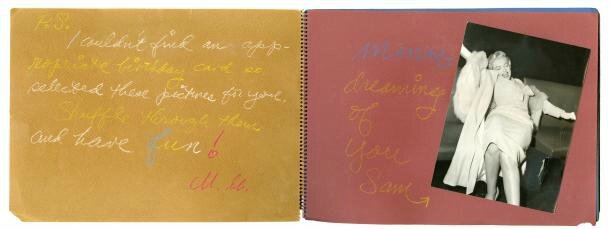 P.S.
I couldn't find an app-
ropriate birthday card so
selected these pictures for you.
Shuffle through them
and have fun!
M. M.
dreaming
of
you
Sam